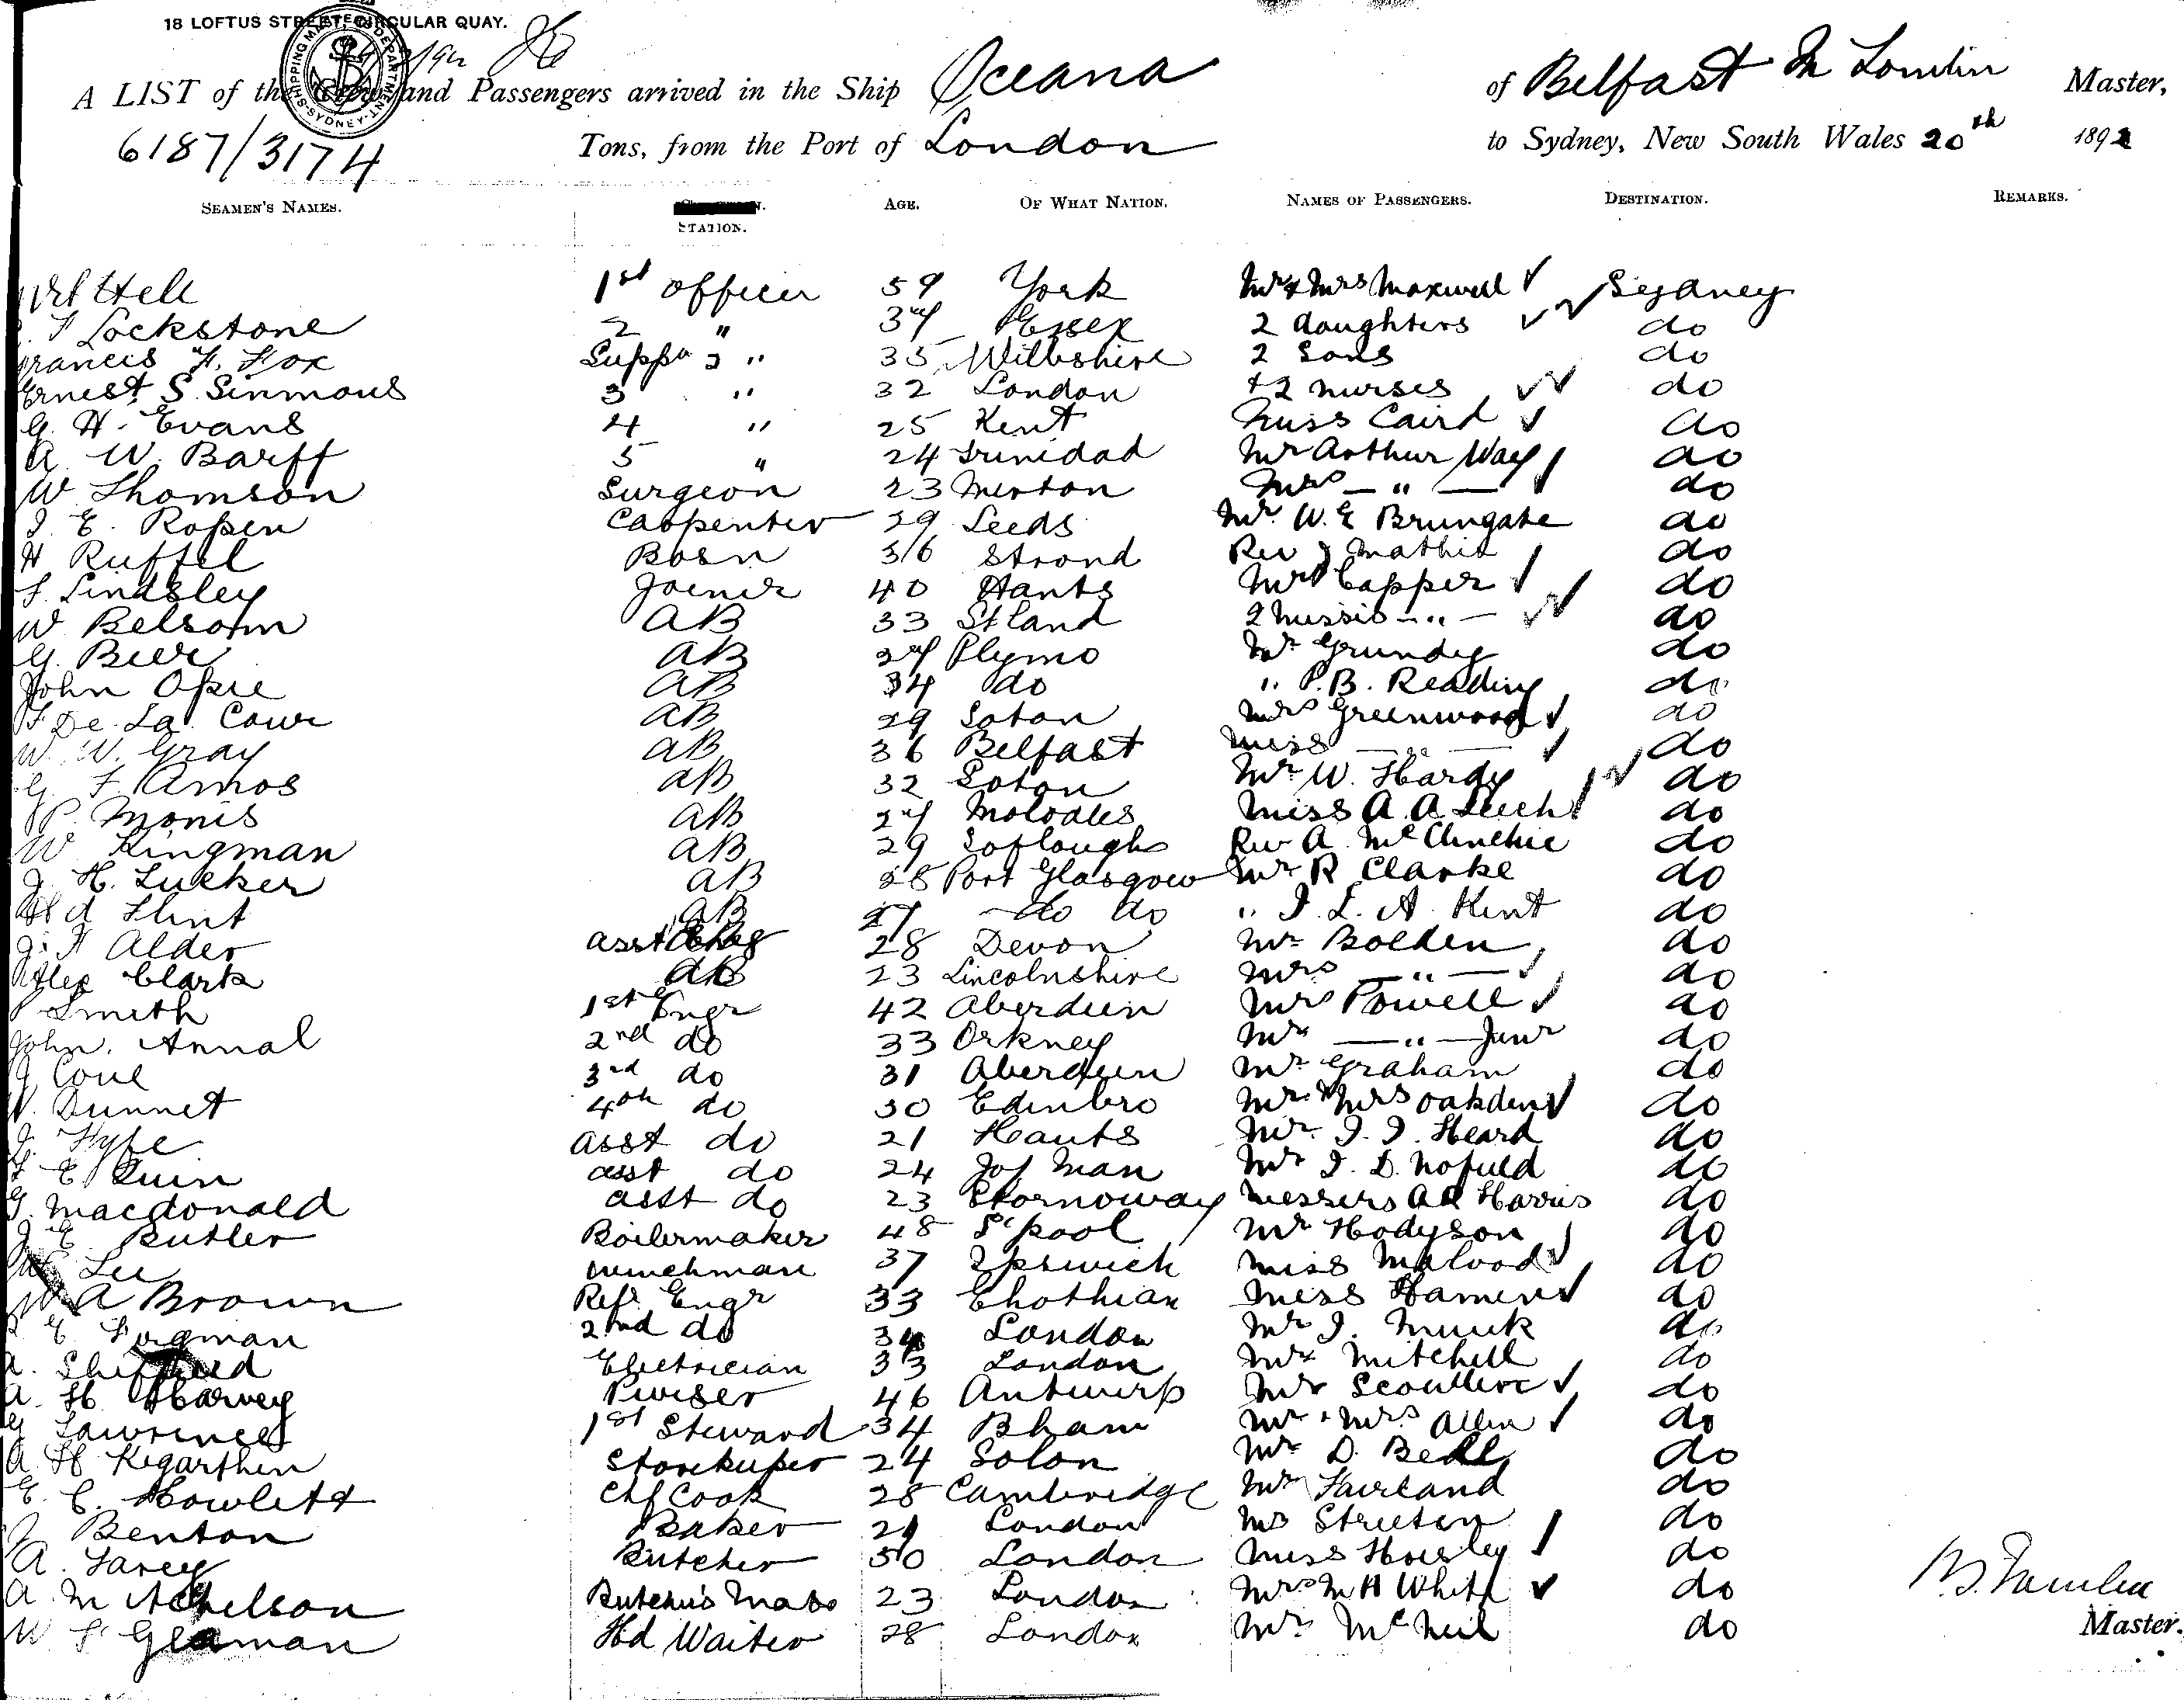 18 LOFTUS STREET, CIRCULAR QUAY.
SHIPPING MASTER'S DEPARTMENT SYDNEY
A LIST of the Crew and Passengers arrived in the Ship Oceana of Belfast Master,
6187/3174 Tons, from the Port of London to Sydney, New South Wales 20th 1892
SEAMEN'S NAMES. STATION. AGE. OF WHAT NATION. NAMES OF PASSENGERS. DESTINATION. REMARKS.
1st officer 59 York Mr & Mrs Maxwell Sydney
Lockstone 2 " 37 Essex 2 daughters do
Francis H. Fox Supp 2 " 35 Wiltshire 2 Sons do
Ernest S. Simmons 3 " 32 London + 2 nurses do
G. H. Evans 4 " 25 Kent Miss Caird do
A. W. Barff 5 " 24 Trinidad Mr Arthur Way do
W Thomson Surgeon 23 Merton Mrs — " — do
J. E. Ropen Carpenter 29 Leeds Mr. W. E Brungate do
H Ruffel Bosn 36 Strond Rev J Mathie do
F. Lindsley Joiner 40 Hants Mrs Capper do
W Belsom AB 33 St land 2 Misses - " - do
G. Beer AB 27 Plymo Mr Grundy do
John Opie AB 34 do " P. B. Reading do
De La Cour AB 29 Soton Mrs Greenwood do
W. W. Gray AB 36 Belfast Miss — " — do
G. F. Amos AB 32 Soton Mr W. Hardy do
P. Monis AB 27 Miss A. A Leech do
W Kingman AB 29 Rev A. do
J. H. Tucker AB 28 Port Glasgow Mr R Clarke do
Flint AB 27 do do " J. L. A. Kent do
J. F Alder asst 28 Devon Mr Bolden do
Alex Clark AB 23 Lincolnshire Mrs — " — do
Smith 1st Engr 42 Aberdeen Mrs Powell do
John. Annal 2nd do 33 Orkney Mr — " — Junr do
J Coul 3rd do 31 Aberdeen Mr Graham do
W. Dunnet 4th do 30 Edinbro Mr & Mrs Oakden do
J. Fyfe asst do 21 Hants Mr. J. J. Heard do
E Quin asst do 24 I of Man Mr J. D. do
G. Macdonald asst do 23 Stornoway Messers A & Harris do
J E Butler Boilermaker 48 L'pool Mr Hodgson do
Lee winchman 37 Ipswich Miss do
A Brown Refr Engr 33 Miss do
E 2nd do 34 London Mr J. do
A. Sheffield Electrician 33 London Mr Mitchell do
A. H. Harvey Purser 46 Antwerp Mr do
G Lawrence 1st Steward 34 Bham Mr & Mrs Allen do
A H Kegarthen Storekeeper 24 Soton Mr D. Bell do
E. C. Howlett Chf Cook 28 Cambridge Mr Fairland do
J Benton Baker 21 London Mrs Streeten do
A. Farey Butcher 50 London Miss Horsley do
A. M Butcher's Mate 23 London Mrs M H White do
W Hd Waiter 28 London Mr McNeil do
Master.